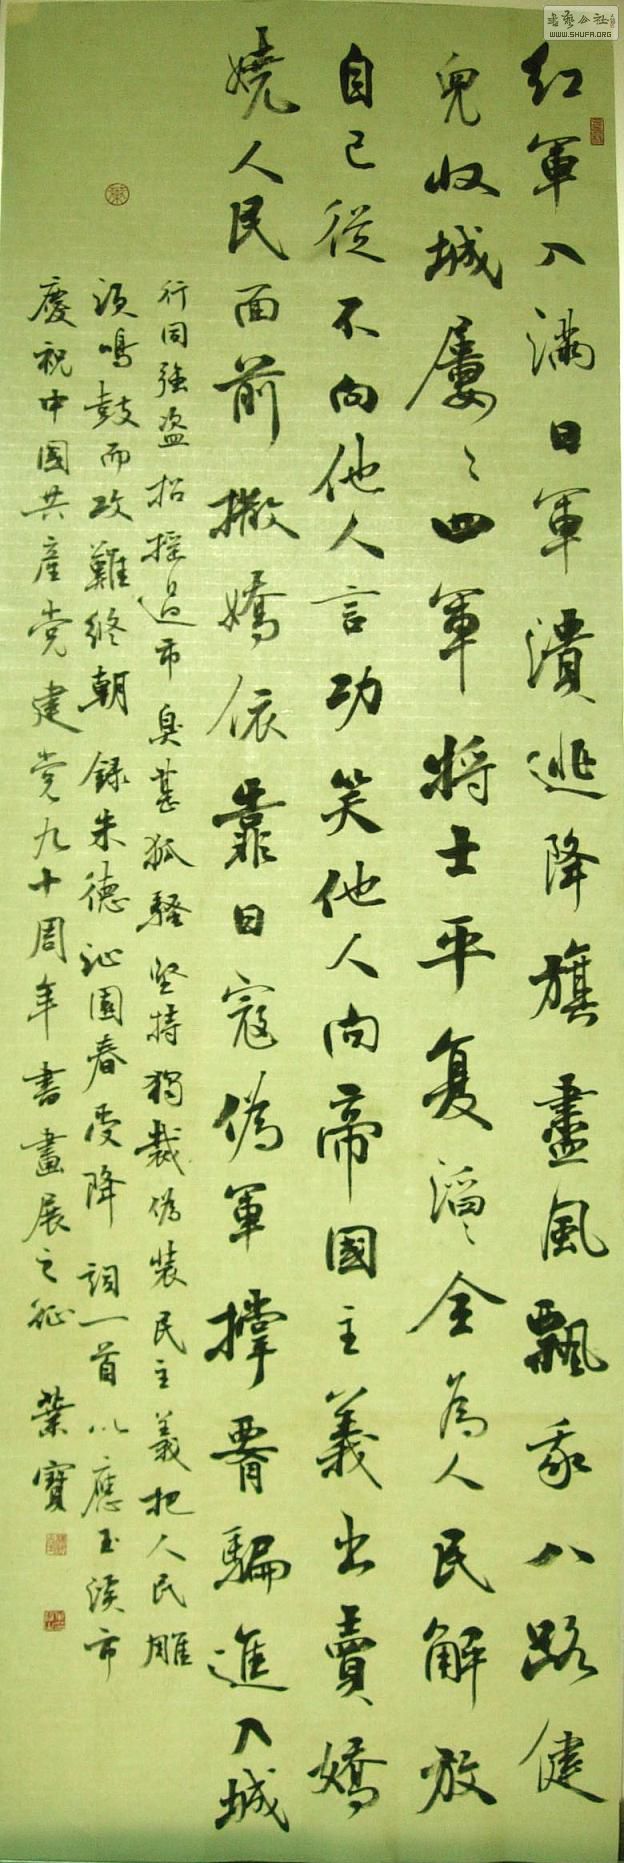 红軍入滿日軍潰逃降旗盡風飄我八路健
兒收城屢〻四軍將士平复滔〻全為人民解放
自己從不向他人言功笑他人向帝國主義出賣嬌
嬈人民面前撒嬌依靠日寇偽軍撑腰騙進入城
行同強盗招摇過市臭甚狐騷坚持獨裁偽裝民主義把人民雕
須鳴鼓而攻難終朝 錄朱德沁園春受降詞一首以應玉溪市
慶祝中國共產党建党九十周年書畫展之征 葉寶
書藝公社
WWW.SHUFA.ORG